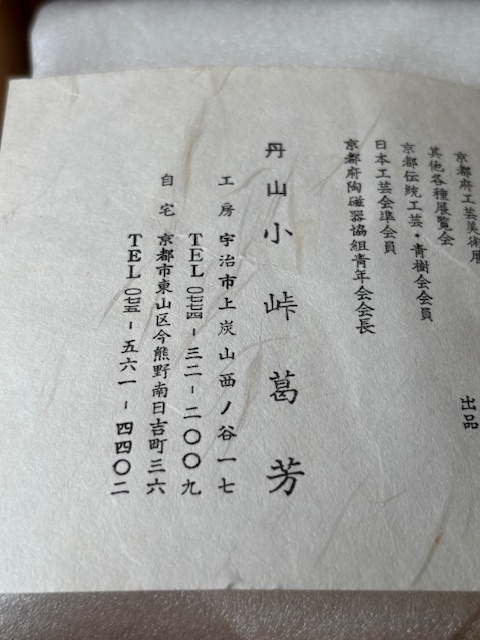 京都府工芸美術展
其他各種展覧会
出品
京都伝統工芸・青樹会会員
日本工芸会準会員
京都府陶磁器協組青年会会長
丹山小峠葛芳
工房 宇治市上炭山西ノ谷一七
TEL〇七七四-三二-二〇〇九
自宅 京都市東山区今熊野南日吉町三六
TEL〇七五-五六一-四四〇二